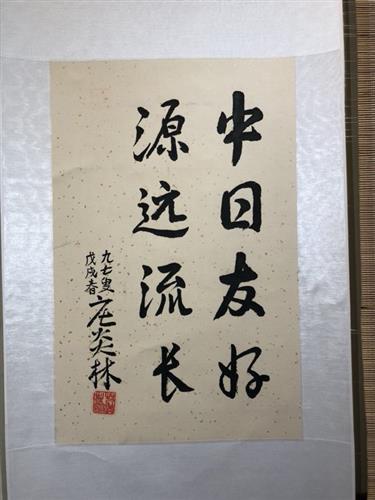 中日友好
源远流长
九七叟
戊戌春 庄炎林